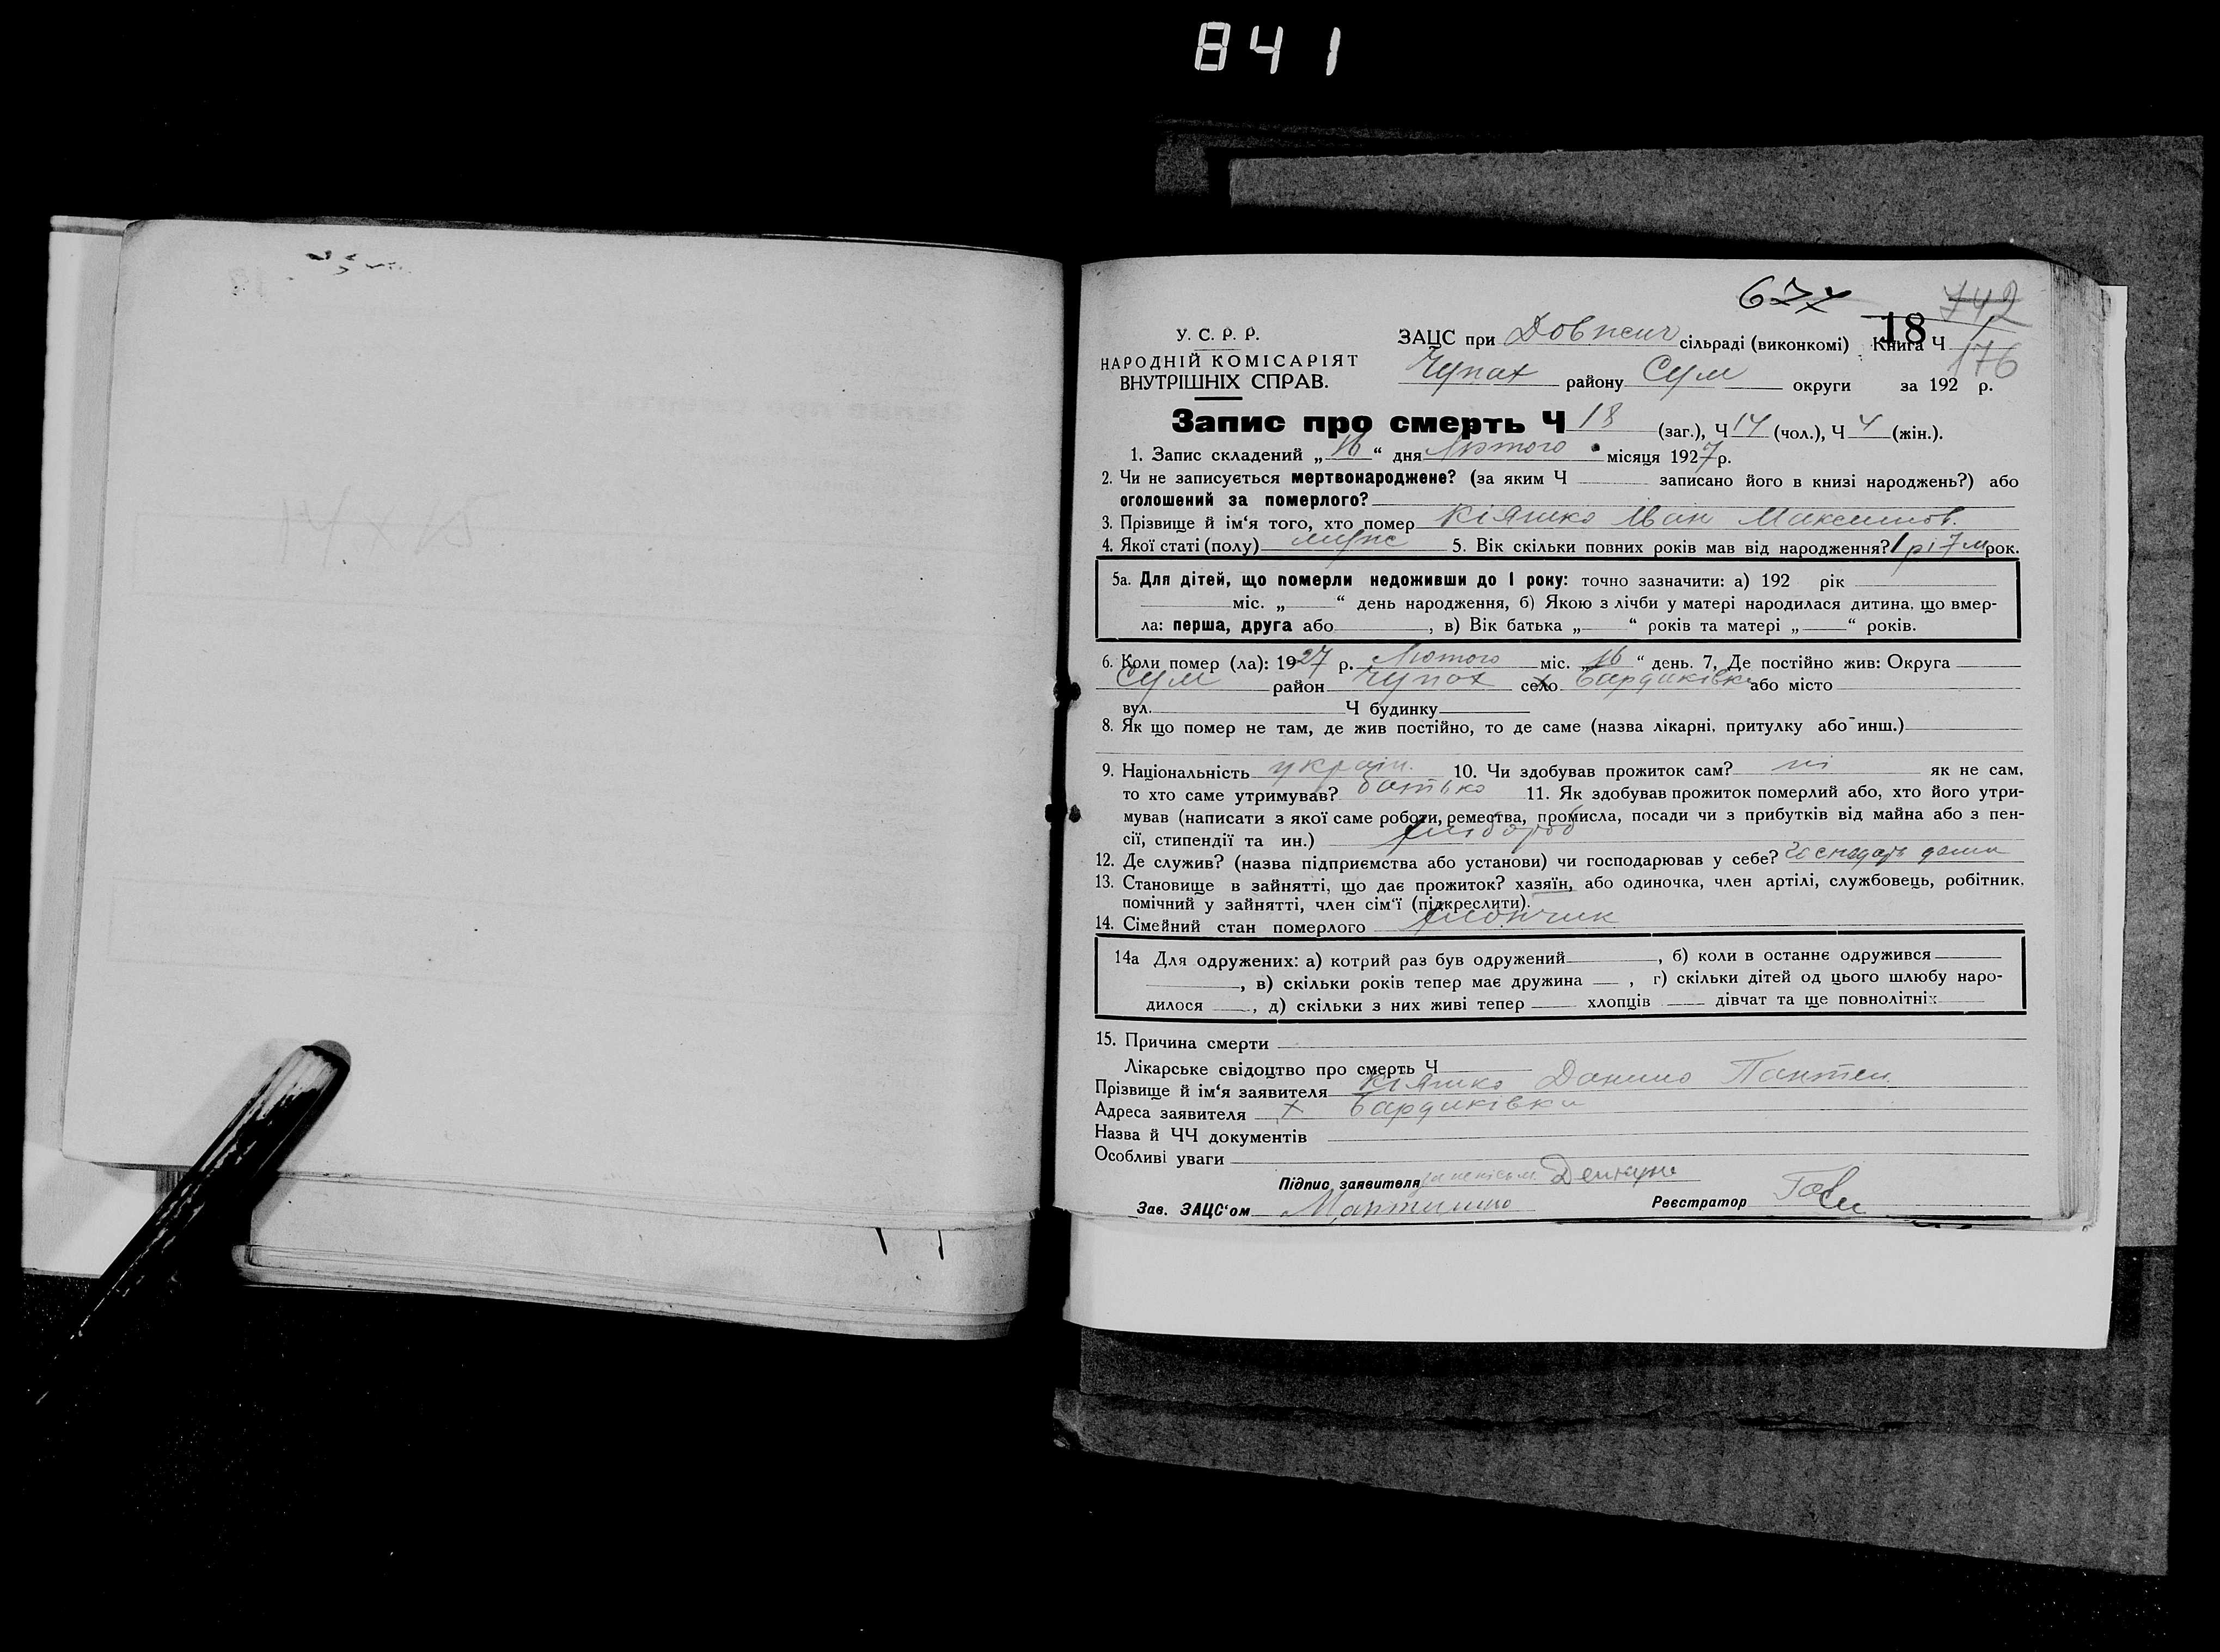 841
674
742
18
176
У. С. Р. Р.
НАРОДНІЙ КОМІСАРІЯТ
ВНУТРІШНІХ СПРАВ.
ЗАЦС при Довжич сільраді (виконкомі) Книга Ч 1
Чупах району Сум округи за 192 р.
Запис про смерть Ч 18 (заг.), Ч 14 (чол.), Ч 4 (жін.).
1. Запис складений „16“ дня Лютого місяця 1927 р.
2. Чи не записується мертвонароджене? (за яким Ч записано його в книзі народжень?) або
оголошений за померлого?
3. Прізвище й ім'я того, хто помер Кіяшко Иван Максимов.
4. Якої статі (полу) мужс 5. Вік скільки повних років мав від народження? 1 рі 7 м рок.
5а. Для дітей, що померли недоживши до 1 року: точно зазначити: а) 192 рік
міс. „ “ день народження, б) Якою з лічби у матері народилася дитина, що вмер-
ла: перша, друга або , в) Вік батька „ “ років та матері „ “ років.
6. Коли помер (ла): 1927 р. Лютого міс. „16“ день. 7, Де постійно жив: Округа
Сум район Чупах село х Бардаківка або місто
вул. Ч будинку
8. Як що помер не там, де жив постійно, то де саме (назва лікарні, притулку або инш.)
9. Національність україн. 10. Чи здобував прожиток сам? ні як не сам,
то хто саме утримував? батько 11. Як здобував прожиток померлий або, хто його утри-
мував (написати з якої саме роботи, ремества, промисла, посади чи з прибутків від майна або з пен-
сії, стипендії та ин.) хлібороб
12. Де служив? (назва підприємства або установи) чи господарював у себе? Господарь дома
13. Становище в зайнятті, що дає прожиток? хазяїн, або одиночка, член артілі, службовець, робітник,
помічний у зайнятті, член сім'ї (підкреслити).
14. Сімейний стан померлого хлопчик
14а Для одружених: а) котрий раз був одружений , б) коли в останнє одружився
, в) скільки років тепер має дружина , г) скільки дітей од цього шлюбу наро-
дилося , д) скільки з них живі тепер хлопців дівчат та ще повнолітніх
15. Причина смерти
Лікарське свідоцтво про смерть Ч
Прізвище й ім'я заявителя Кіяшко Данило Пантел.
Адреса заявителя х Бардаківка
Назва й ЧЧ документів
Особливі уваги
Підпис заявителя
Зав. ЗАЦС'ом Реєстратор